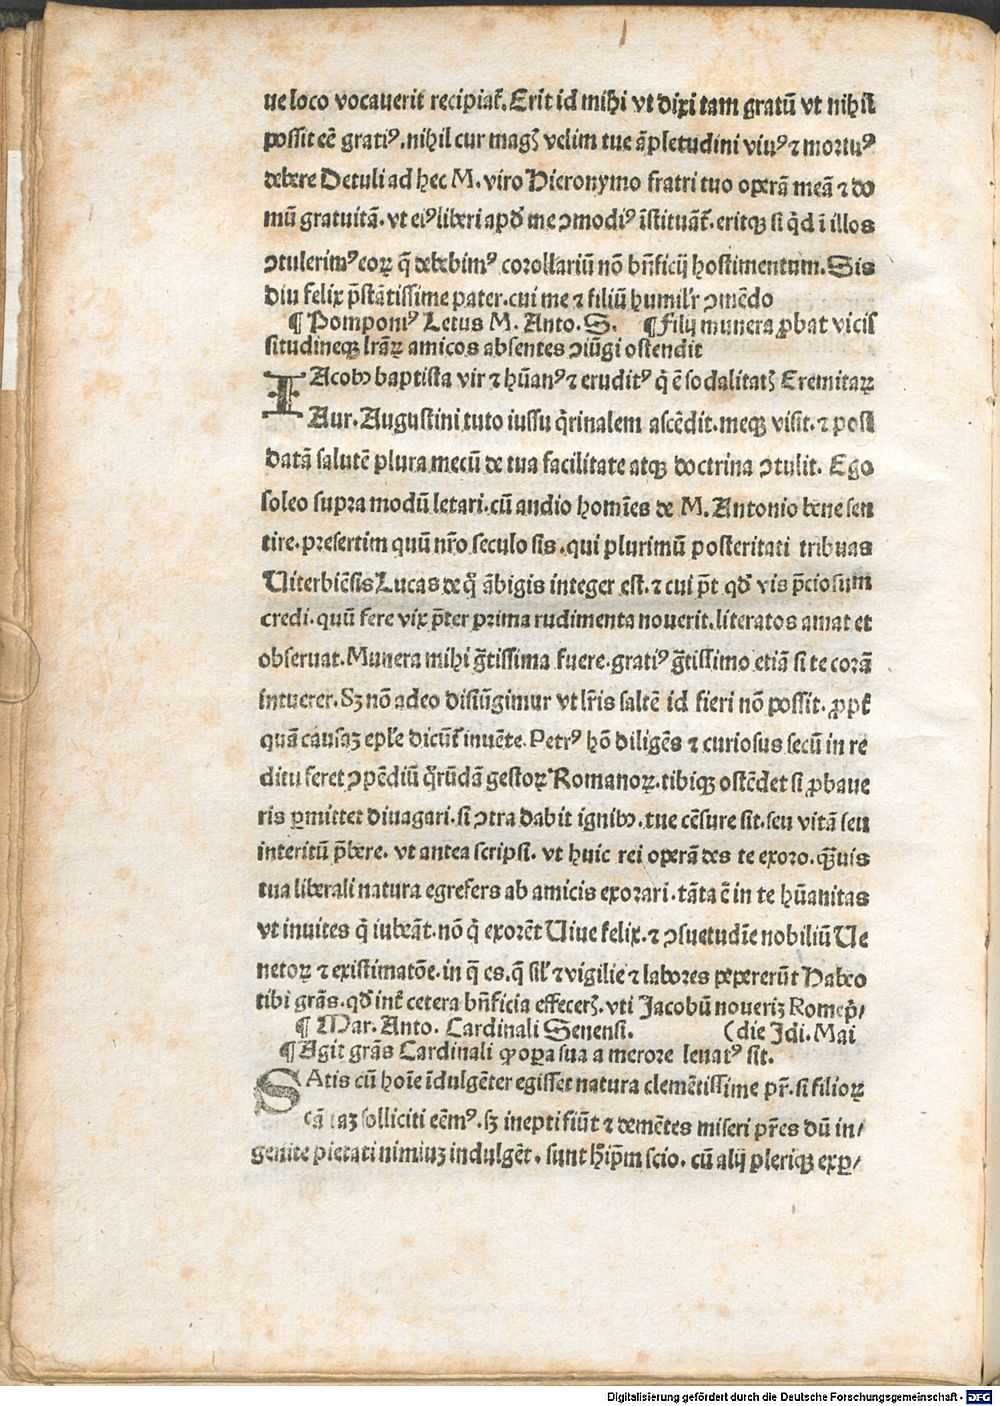 ue loco vocauerit recipiat᷑. Erit id mihi vt dixi tam gratū vt nihil
possit eē gratiꝰ. nihil cur magꝭ velim tue āpletudini viuꝰ ⁊ mortuꝰ
debere Detuli ad hec M. viro Hieronymo fratri tuo operā meā ⁊ do
mū gratuitā. vt eiꝰ liberi apđ me ꝯmodiꝰ īstituāt᷑. eritqꝫ si qͥd ī illos
ꝯtulerimꝰ eoꝝ q̄ debebimꝰ corollariū nō bn̄ficij hostimentum. Sis
diu felix p̄stātissime pater. cui me ⁊ filiū humil'r ꝯmēdo
¶ Pomponiꝰ Letus M. Anto. S. ¶ Filij munera ꝓbat vicis
situdineqꝫ lr̄aꝝ amicos absentes ꝯiūgi ostendit
IAcobꝰ baptista vir ⁊ hūanꝰ ⁊ eruditꝰ q̇ ē sodalitatꝭ Eremitaꝝ
Aur. Augustini tuto iussu qͥrinalem ascēdit. meqꝫ visit. ⁊ post
datā salutē plura mecū de tua facilitate atqꝫ doctrina ꝯtulit. Ego
soleo supra modū letari. cū audio homīes de M. Antonio bene sen
tire. presertim quū nr̄o seculo sis. qui plurimū posteritati tribuas
Uiterbiēsis Lucas de qͦ ābigis integer est. ⁊ cui p̄t qđ vis p̄ciosum
credi. quū fere vix p̄ter prima rudimenta nouerit. literatos amat et
obseruat. Munera mihi gͣtissima fuere. gratiꝰ gͣtissimo etiā si te corā
intuerer. Sꝫ nō adeo disiūgimur vt lr̄is saltē id fieri nō possit. ꝓpt᷑
quā causaꝫ epl'e dicūt᷑ inuēte. Petrꝰ hō diligēs ⁊ curiosus secū in re
ditu feret ꝯpēdiū qͦrūdā gestoꝝ Romanoꝝ. tibiqꝫ ostēdet si ꝓbaue
ris ꝑmittet diuagari. si ꝯtra dabit ignibꝰ. tue cēsure sit. seu vitā seu
interitū p̄bere. vt antea scripsi. vt huic rei operā des te exoro. qͣꝫuis
tua liberali natura egrefers ab amicis exorari. tāta ē in te hūanitas
vt inuites q̇ iubeāt. nō q̇ exorēt Uiue felix. ⁊ ꝯsuetudīe nobiliū Ue
netoꝝ ⁊ existimatōe. in q̄ es. q̄ sil' ⁊ vigilie ⁊ labores pepererūt Habeo
tibi grās. qđ int᷑ cetera bn̄ficia effecerꝭ. vti Jacobū noueriꝫ Rome pͥ/
¶ Mar. Anto. Cardinali Senensi. (die Jdi. Mai
¶ Agit grās Cardinali ꝙ oꝑa sua a merore leuatꝰ sit.
SAtis cū hoīe īdulgēter egisset natura clemētissime pr̄. si filioꝝ
cā taꝫ solliciti eēmꝰ. sꝫ inepti fiūt ⁊ demētes miseri pr̄es dū in/
genite pietati nimiuꝫ indulgēt. sunt h̄ ip̄m scio. cū alij pleriqꝫ exꝑ/
Digitalisierung gefördert durch die Deutsche Forschungsgemeinschaft - DFG